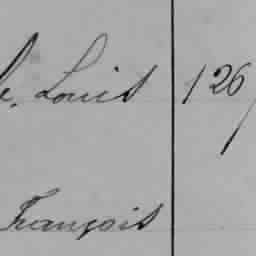 Louis 126
François